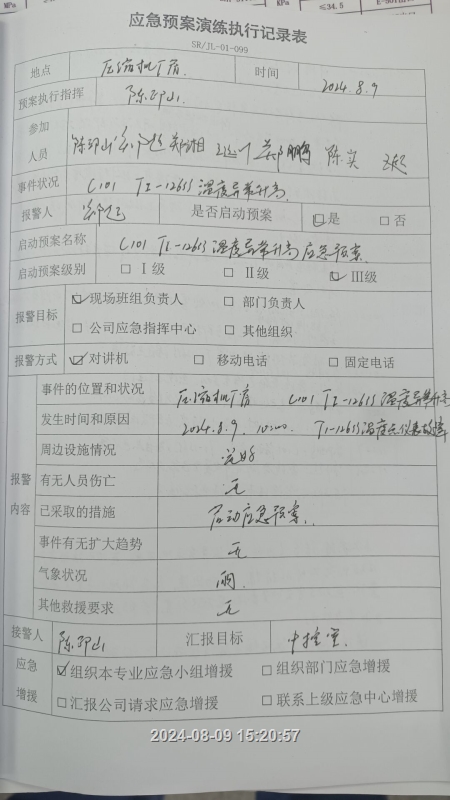 应急预案演练执行记录表
SR/JL-01-099
地点 压缩机厂房 时间 2024.8.9
预案执行指挥 陈卫山
参加人员 陈卫山 陈实
事件状况 C101 TI-12615温度异常升高
报警人 是否启动预案 ☑是 □否
启动预案名称 C101 TI-12615温度异常升高应急预案
启动预案级别 □Ⅰ级 □Ⅱ级 ☑Ⅲ级
报警目标 ☑现场班组负责人 □部门负责人
□公司应急指挥中心 □其他组织
报警方式 ☑对讲机 □移动电话 □固定电话
报警内容 事件的位置和状况 压缩机厂房 C101 TI-12615温度异常升高
发生时间和原因 2024.8.9. 10:00 TI-12615温度点仪表故障
周边设施情况 完好
有无人员伤亡 无
已采取的措施 启动应急预案
事件有无扩大趋势 无
气象状况 雨
其他救援要求 无
接警人 陈卫山 汇报目标 中控室
应急增援 ☑组织本专业应急小组增援 □组织部门应急增援
□汇报公司请求应急增援 □联系上级应急中心增援
2024-08-09 15:20:57